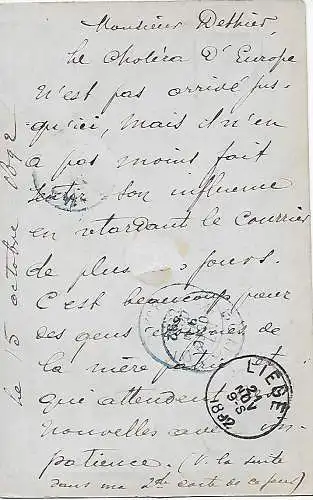 Monsieur Dethier,
le Choléra d'Europe
n'est pas arrivé jus-
qu'ici, mais il n'en
a pas moins fait
sentir son influence
en retardant le courrier
de plus jours.
C'est beaucoup pour
des gens
de la mère
qui attendent
nouvelles avec im-
patience. (V. la suite
dans ma 2de carte de ce jour)
le 15 octobre 1892
LIEGE
21
NOV
9-S
1892